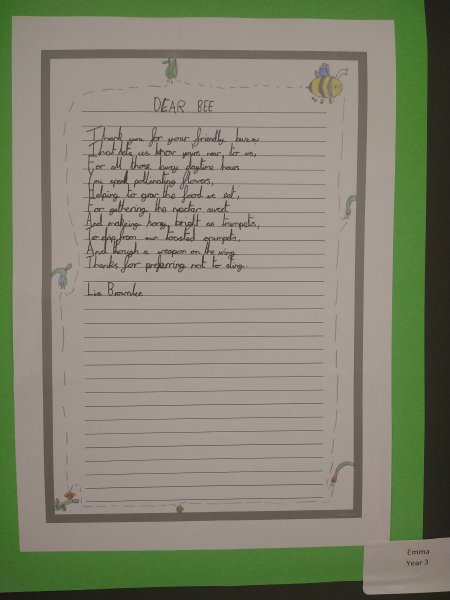 DEAR BEE
Thank you for your friendly buzz,
That lets us know you're near to us,
For all those busy daytime hours
You spend pollinating flowers,
Helping to grow the food we eat,
For gathering the nectar sweet
And makeing honey, bright as trumpets,
To drip from our toasted crumpets,
And though a weapon on the wing
Thanks for preferring not to sting.
Liz Brownlee
Emma
Year 3